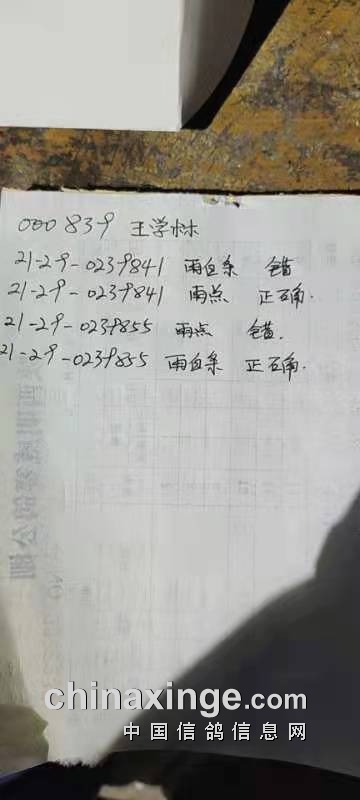 000839 王学林
21-29-0239841 雨白条 错
21-29-0239841 雨点 正确.
21-29-0239855 雨点 错.
21-29-0239855 雨白条 正确.
chinaxinge.com
中国信鸽信息网